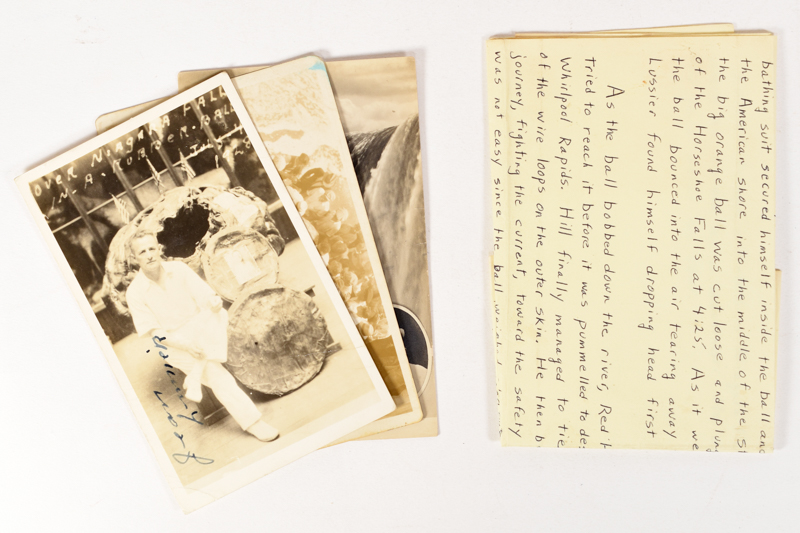 OVER NIAGARA FALL
IN-A-RUBBER-BALL
Jean Lussier
bathing suit secured himself inside the ball
the American shore into the middle of the
the big orange ball was cut loose and
of the Horseshoe Falls at 4:25. As it
the ball bounced into the air tearing away
Lussier found himself dropping head first
As the ball bobbed down the river, Red
Tried to reach it before it was pummelled to
Whirlpool Rapids. Hill finally managed to tie
of the wire loops on the outer skin. He then
journey, fighting the current, toward the safety
was not easy since the ball